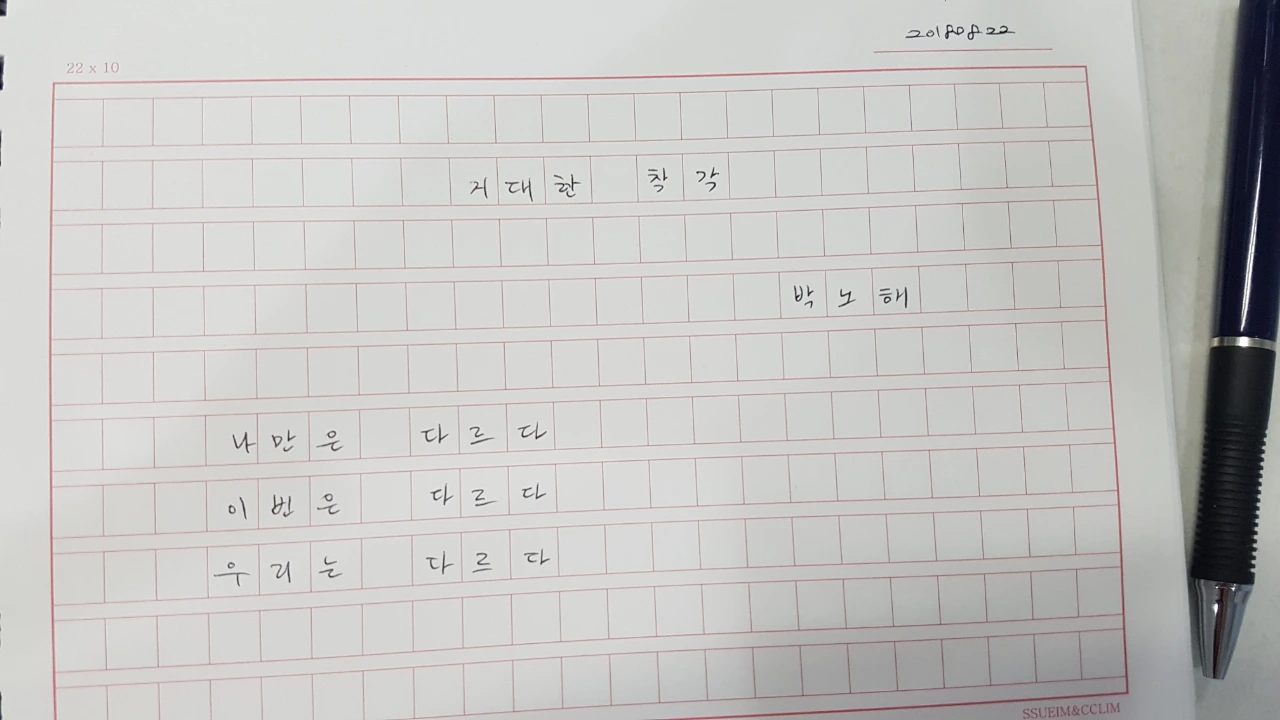 20180822
22 x 10
거대한 착각
박노해
나만은 다르다
이번은 다르다
우리는 다르다
SSUEIM&CCLIM